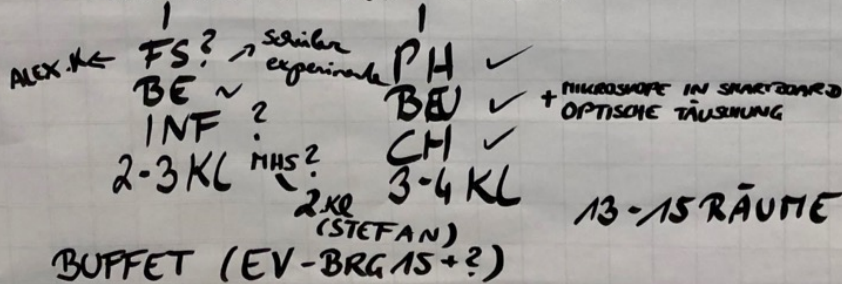 ALEX.K ← FS? ↗ schüler experimente
BE ~
INF ?
2-3 KL MHS?
2.KL (STEFAN)
PH ✓
BEU ✓ + MIKROSKOPE IN SMARTBOARD
OPTISCHE TÄUSCHUNG
CH ✓
3-4 KL
13-15 RÄUME
BUFFET (EV-BRG 15 + ?)